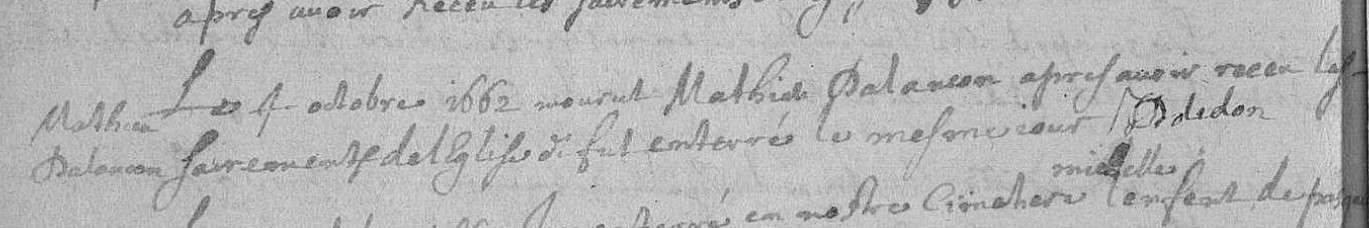 apres avoir Receu les sacrements
Le 4 octobre 1662 mourut Mathieu Palancon apres avoir receu les
Mathieu
Palancon sacrements de lEglise & fut enterré le mesme iour Dledon
mielle
enterré en nostre Cimetiere lenfent de